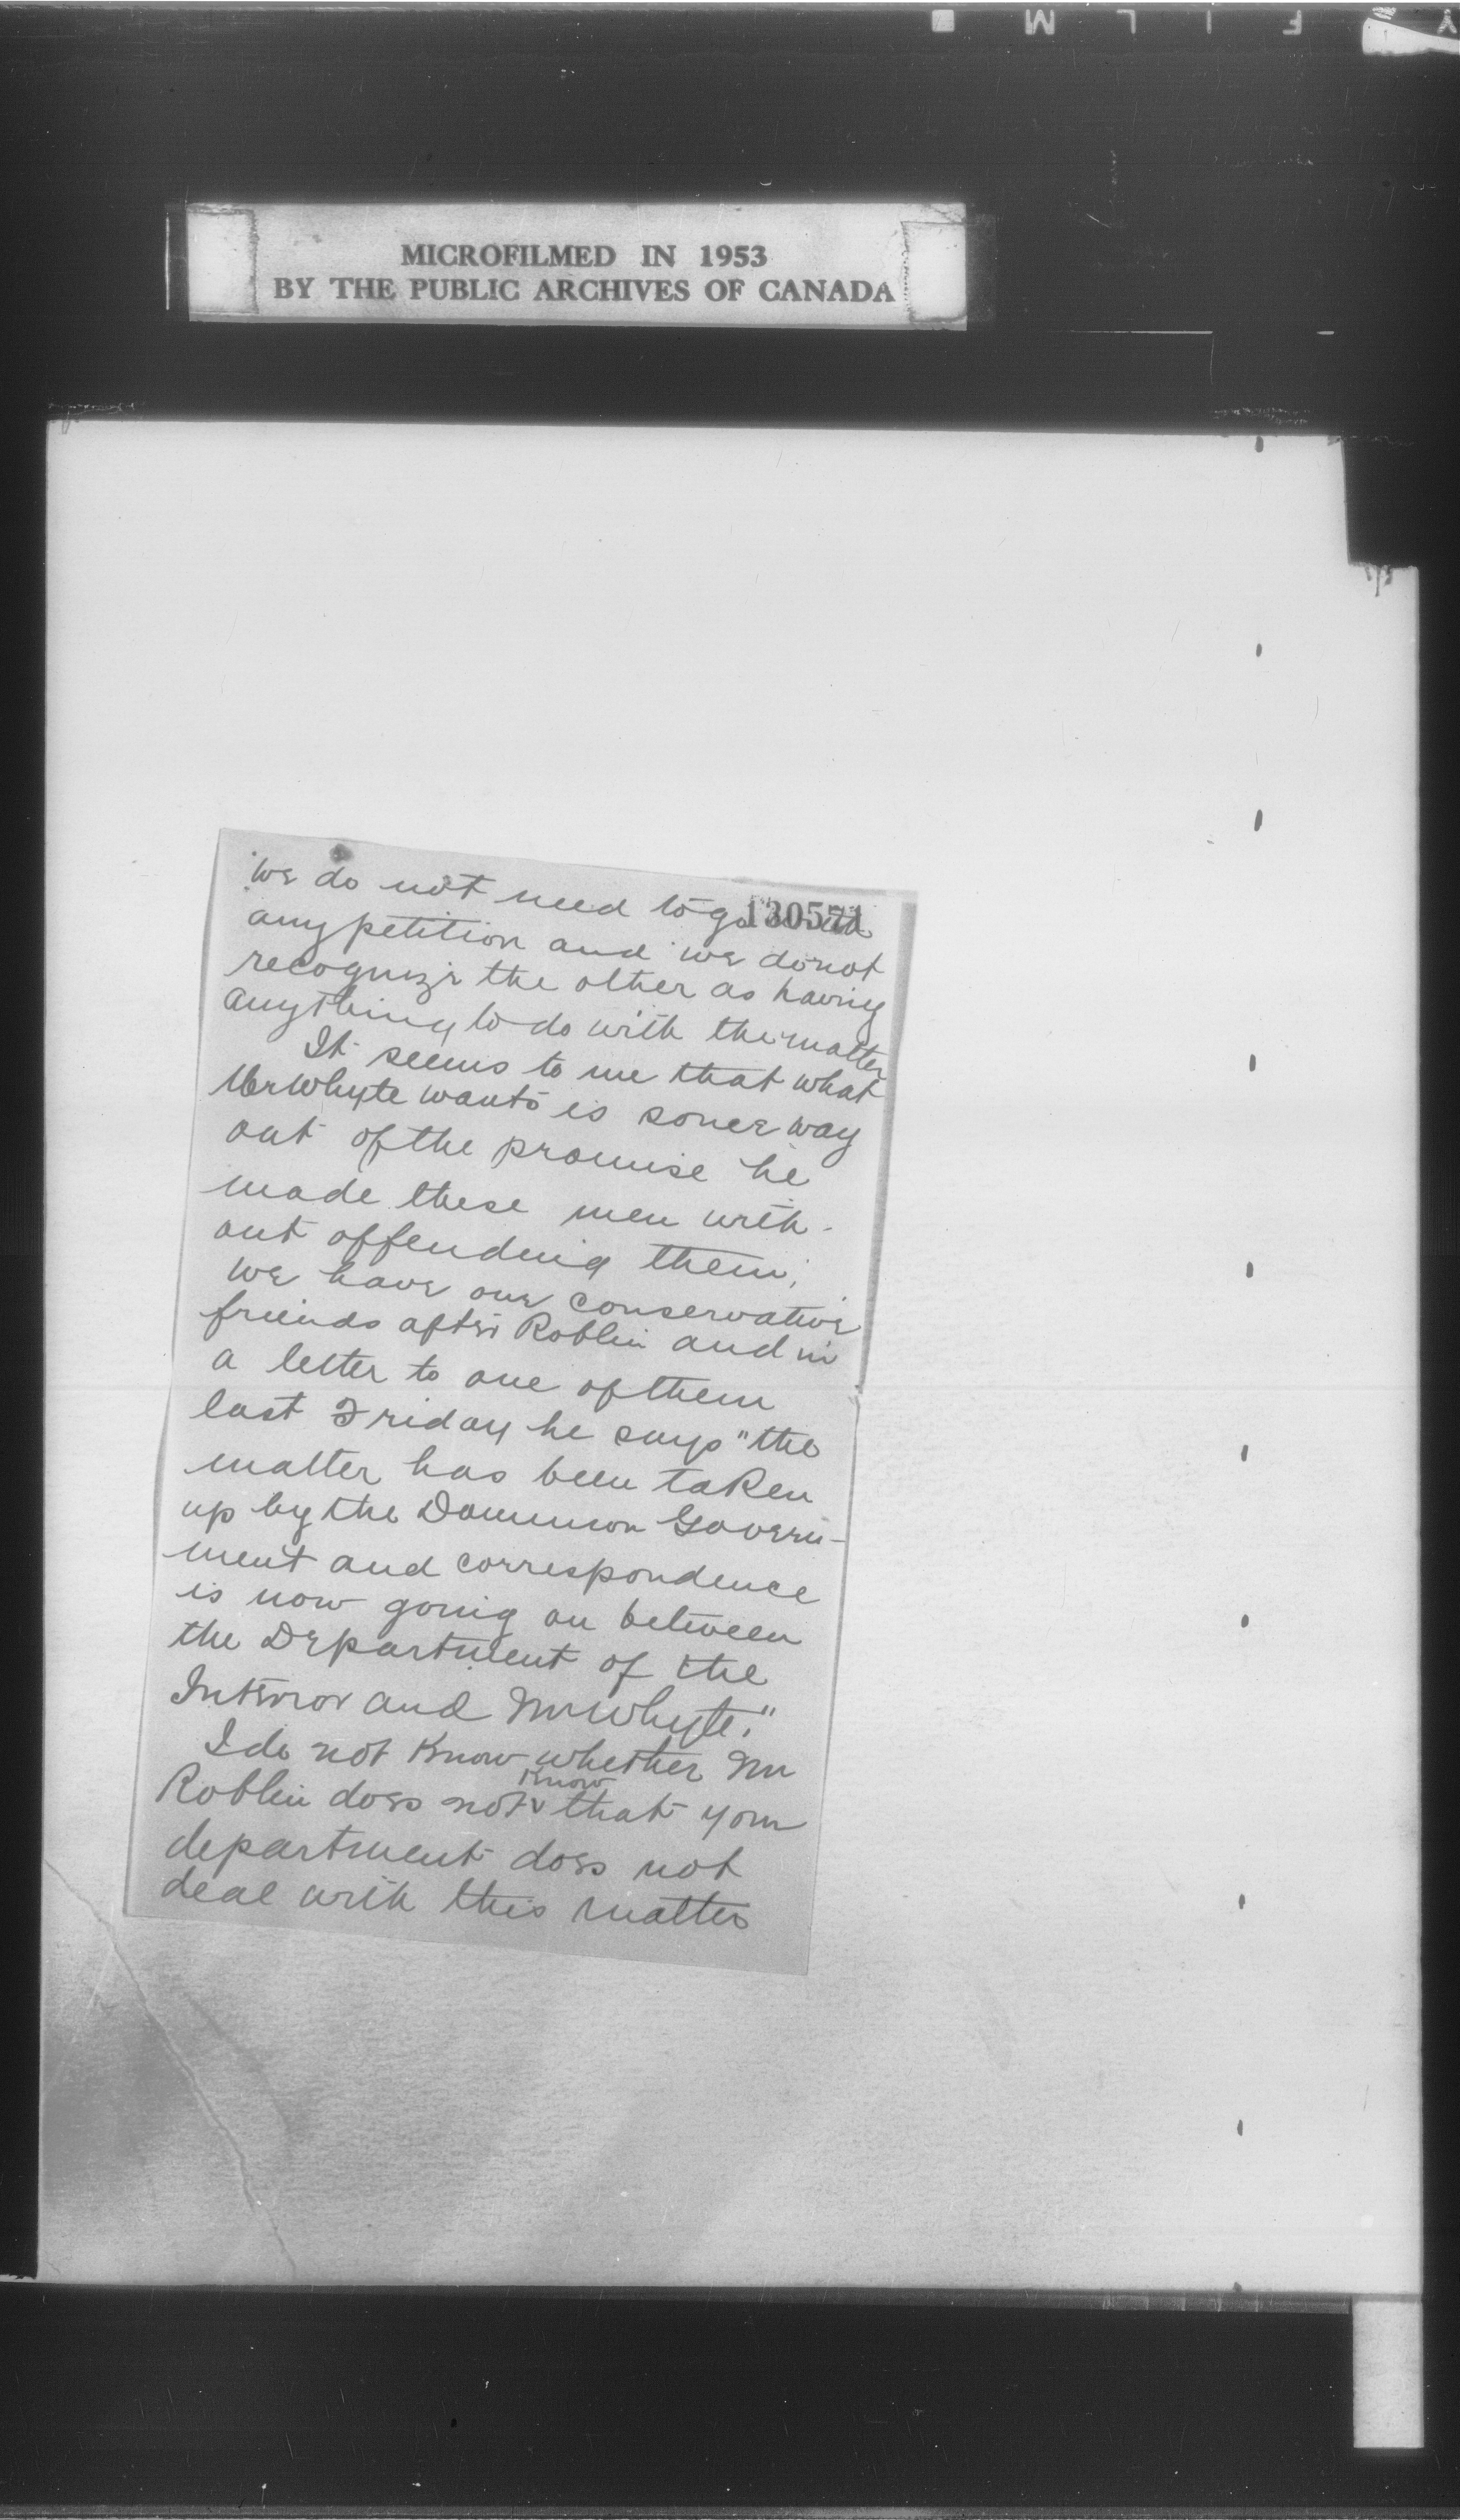 Y F I L M
MICROFILMED IN 1953
BY THE PUBLIC ARCHIVES OF CANADA
130571
we do not need to go with
any petition and we do not
recognize the other as having
anything to do with the matter
It seems to me that what
Mr Whyte wants is some way
out of the promise he
made these men with-
out offending them;
we have our conservative
friends after Roblin and in
a letter to one of them
last Friday he says "the
matter has been taken
up by the Dominion Govern-
ment and correspondence
is now going on between
the Department of the
Interior and Mr Whyte."
I do not know whether Mr
Roblin does not know that your
department does not
deal with this matter